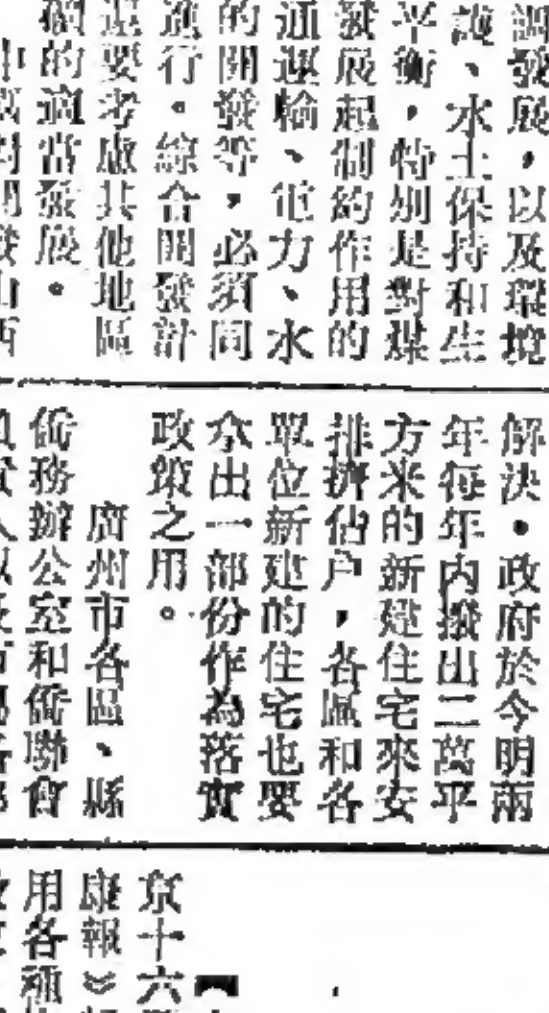 調發展，以及環境
護、水土保持和生
平衡，特別是對煤
發展起制約作用的
通運輸、電力、水
的開發等，必須同
進行。綜合開發計
還要考慮其他地區
的適當發展。
解決。政府於今明兩
年每年内撥出二萬平
方米的新建住宅來安
排擠佔户，各區和各
單位新建的住宅也要
拿出一部份作為落實
政策之用。
廣州市各區、縣
僑務辦公室和僑聯會
京十六
康報》
用各種